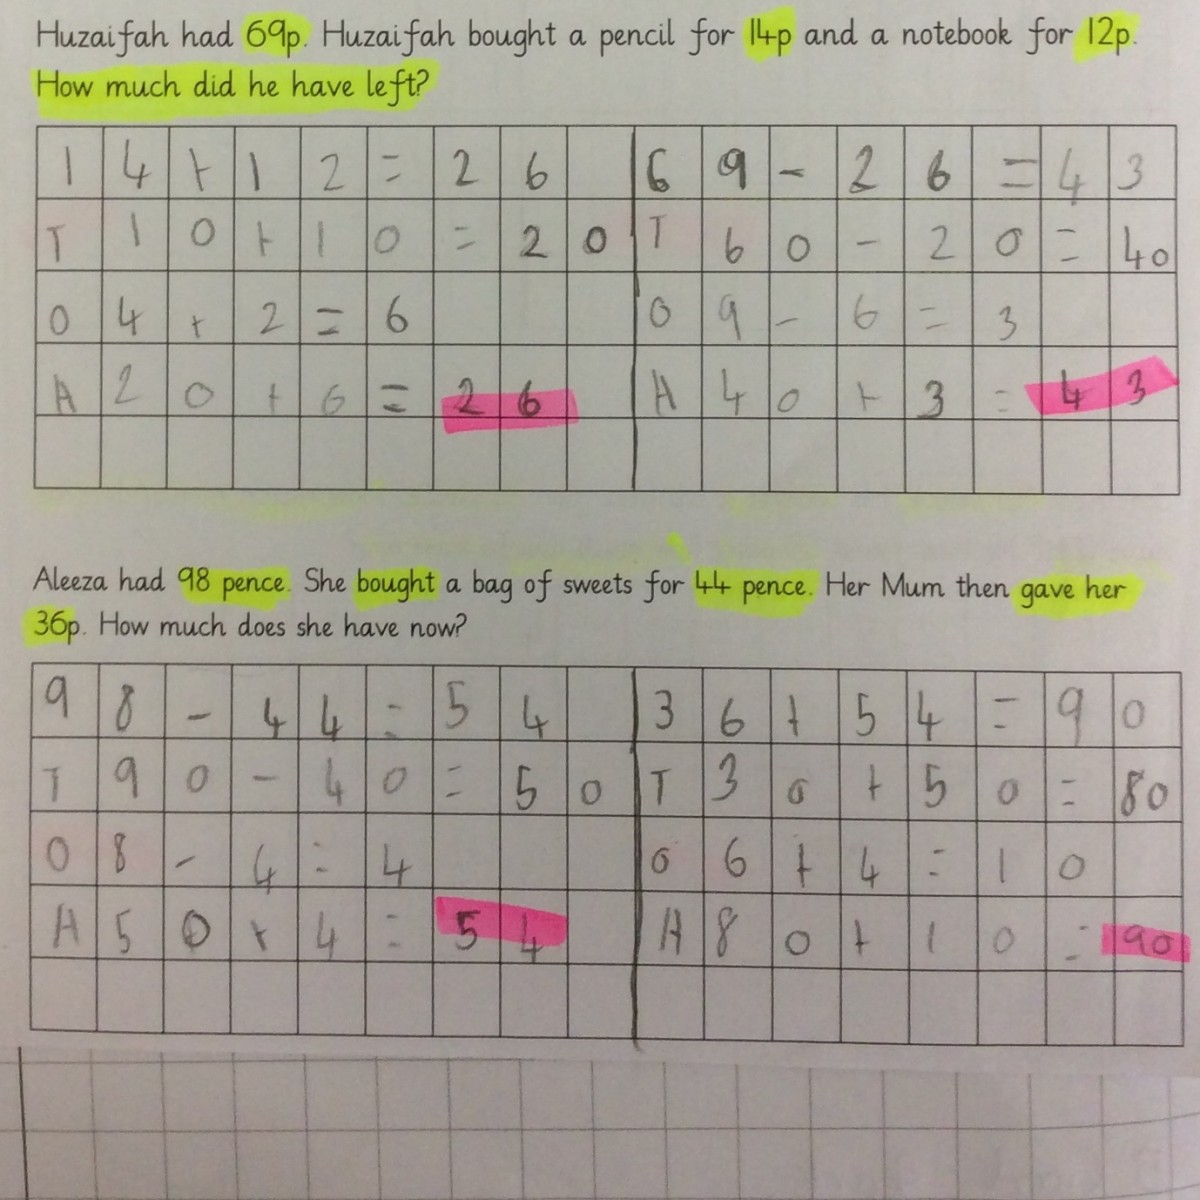 Huzaifah had 69p. Huzaifah bought a pencil for 14p and a notebook for 12p.
How much did he have left?
14+12=26 69-26=43
T 10+10=20 T 60-20=40
O 4+2=6 O 9-6=3
A 20+6=26 A 40+3=43
Aleeza had 98 pence. She bought a bag of sweets for 44 pence. Her Mum then gave her
36p. How much does she have now?
98-44=54 36+54=90
T 90-40=50 T 30+50=80
O 8-4=4 O 6+4=10
A 50+4=54 A 80+10=90